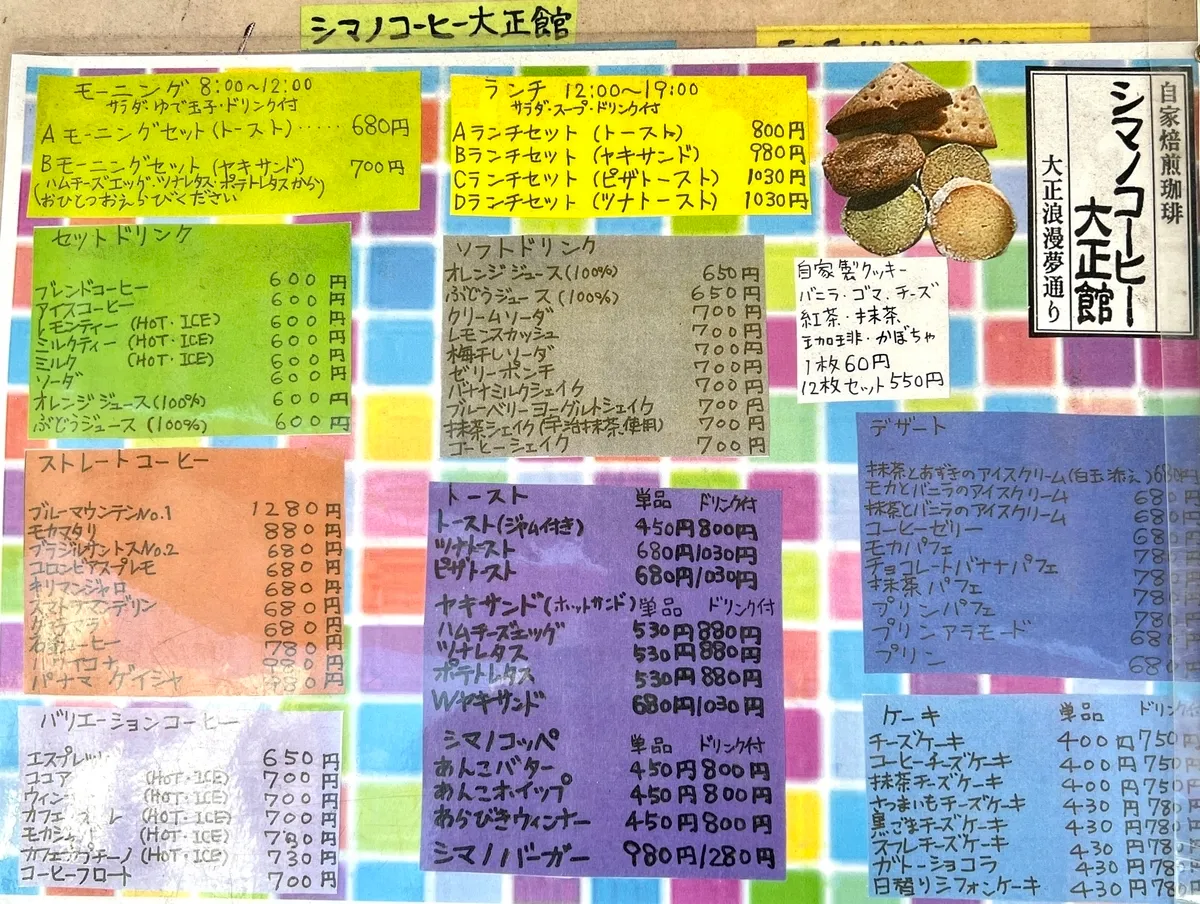 シマノコーヒー大正館
モーニング 8:00～12:00
サラダ・ゆで玉子・ドリンク付
Aモーニングセット(トースト)‥‥‥ 680円
Bモーニングセット(ヤキサンド) 700円
(ハムチーズエッグ・ツナレタス・ポテトレタスから)
おひとつおえらびください
ランチ 12:00～19:00
サラダ・スープ・ドリンク付
Aランチセット (トースト) 800円
Bランチセット (ヤキサンド) 980円
Cランチセット (ピザトースト) 1030円
Dランチセット (ツナトースト) 1030円
自家焙煎珈琲
シマノコーヒー
大正館
大正浪漫夢通り
セットドリンク
ブレンドコーヒー 600円
アイスコーヒー 600円
レモンティー (HOT・ICE) 600円
ミルクティー (HOT・ICE) 600円
ミルク (HOT・ICE) 600円
ソーダ 600円
オレンジジュース(100%) 600円
ぶどうジュース (100%) 600円
ソフトドリンク
オレンジジュース(100%) 650円
ぶどうジュース (100%) 650円
クリームソーダ 700円
レモンスカッシュ 700円
梅干しソーダ 700円
ゼリーポンチ 700円
バナナミルクシェイク 700円
ブルーベリーヨーグルトシェイク 700円
抹茶シェイク(宇治抹茶使用) 700円
コーヒーシェイク 700円
自家製クッキー
バニラ・ゴマ、チーズ
紅茶・抹茶
珈琲・かぼちゃ
1枚60円
12枚セット550円
ストレートコーヒー
ブルーマウンテンNo.1 1280円
モカマタリ 880円
ブラジルサントスNo.2 680円
コロンビアスプレモ 680円
キリマンジャロ 680円
スマトラマンデリン 680円
680円
コーヒー 780円
ハワイコナ 980円
パナマ ゲイシャ 980円
バリエーションコーヒー
エスプレッソ 650円
ココア (HOT・ICE) 700円
ウィン (HOT・ICE) 700円
カフェ レ (HOT・ICE) 700円
モカ (HOT・ICE) 円
カフェカプチーノ (HOT・ICE) 730円
コーヒーフロート 700円
トースト 単品 ドリンク付
トースト(ジャム付き) 450円 800円
ツナトースト 680円/1030円
ピザトースト 680円/1030円
ヤキサンド(ホットサンド) 単品 ドリンク付
ハムチーズエッグ 530円 880円
ツナレタス 530円 880円
ポテトレタス 530円 880円
Wヤキサンド 680円/1030円
シマノコッペ 単品 ドリンク付
あんこバター 450円 800円
あんこホイップ 450円 800円
あらびきウィンナー 450円 800円
シマノバーガー 980円/1280円
デザート
抹茶とあずきのアイスクリーム(白玉添え) 680円
モカとバニラのアイスクリーム 680
抹茶とバニラのアイスクリーム 680
コーヒーゼリー 680
モカパフェ 780
チョコレートバナナパフェ 780
抹茶パフェ 780
プリンパフェ 780
プリンアラモード 680
プリン 680
ケーキ 単品 ドリンク付
チーズケーキ 400円 750
コーヒーチーズケーキ 400円 750
抹茶チーズケーキ 400円 750
さつまいもチーズケーキ 430円 780
黒ごまチーズケーキ 430円 780
スフレチーズケーキ 430円 780
ガトーショコラ 430円 780
日替りシフォンケーキ 430円 780